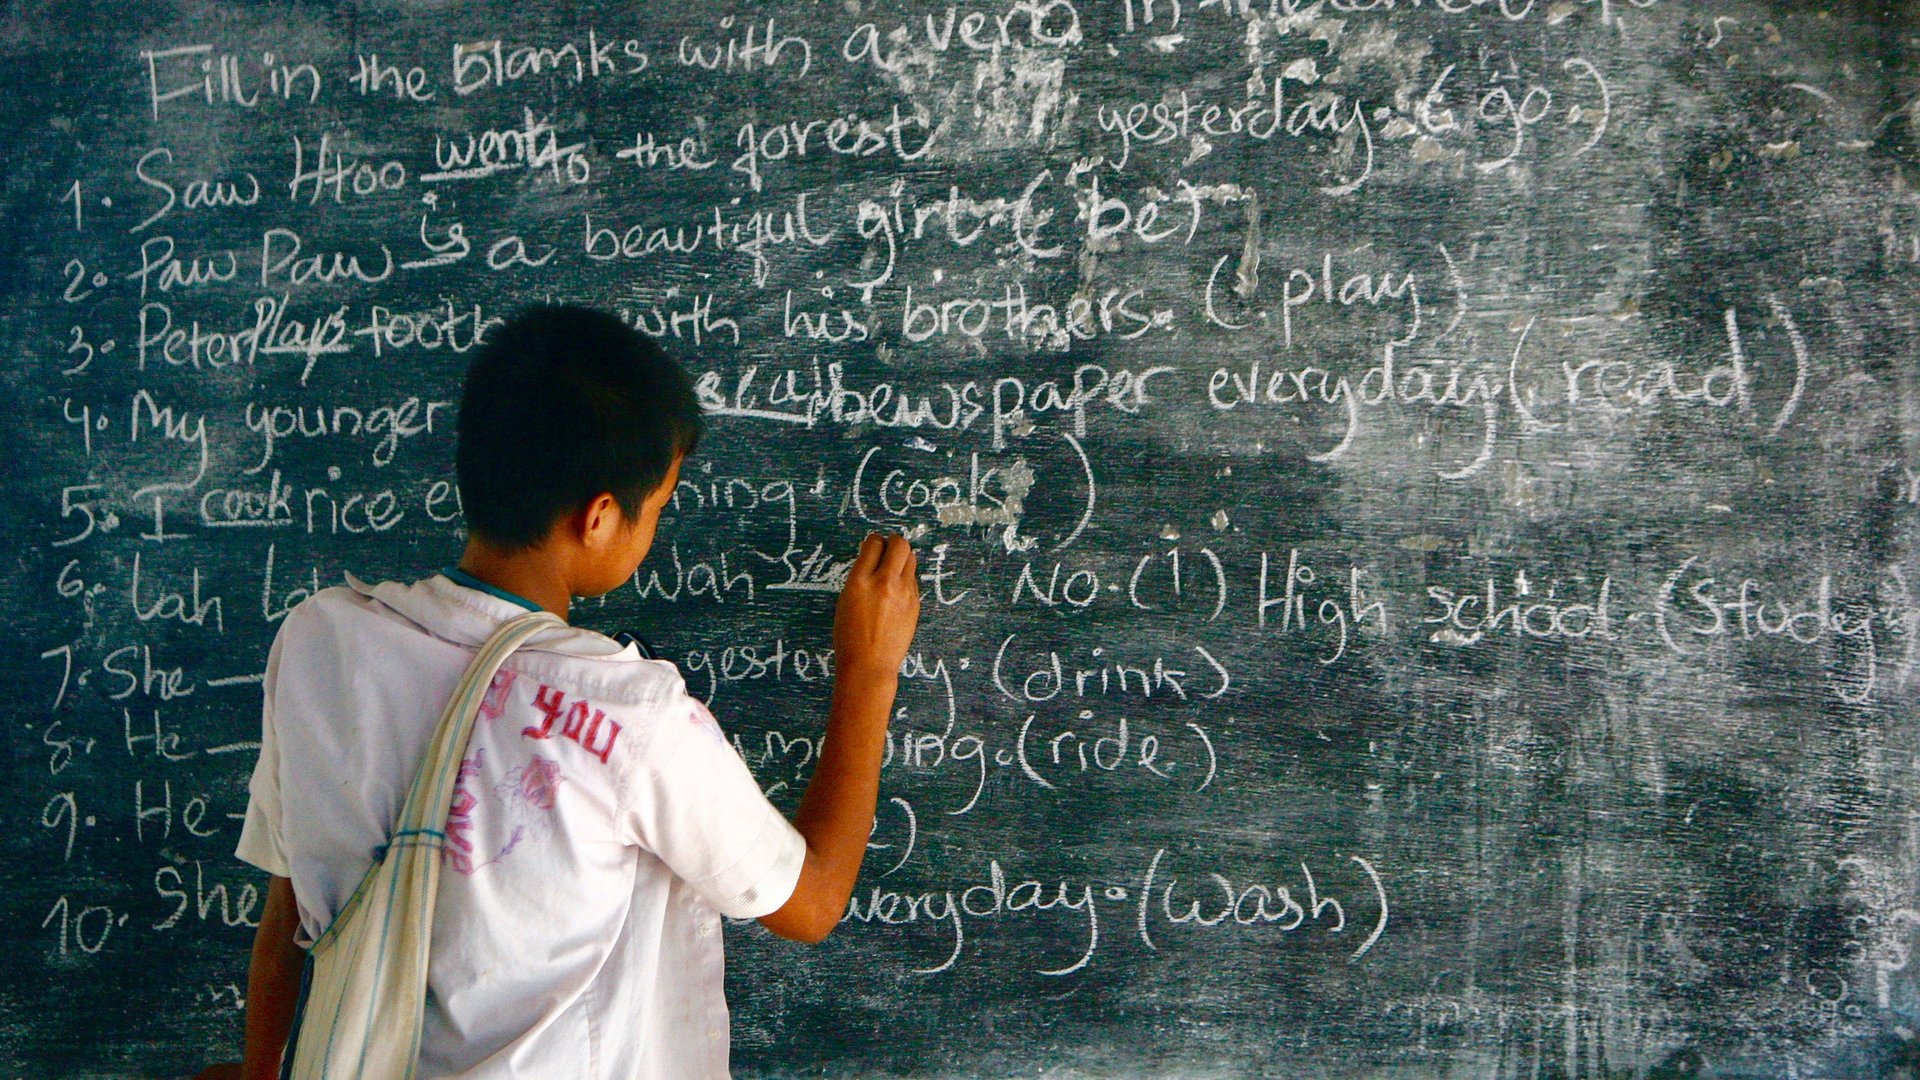 Fill in the blanks with a verb in the
1. Saw Htoo went to the forest yesterday. (go.)
2. Paw Paw is a beautiful girl. (be)
3. Peter plays footb with his brothers. (play)
4. My younger newspaper everyday (read)
5. I cook rice e ning. (cook)
6. Lah La Wah stu t No. (1) High school. (Study)
7. She yester ay. (drink)
8. He ing. (ride.)
9. He
10. She everyday. (wash)
you